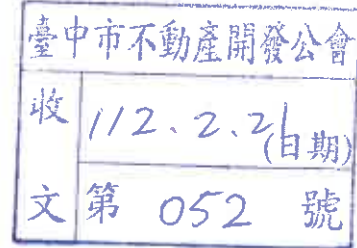 臺中市不動產開發公會
收 112.2.21(日期)
文 第 052 號